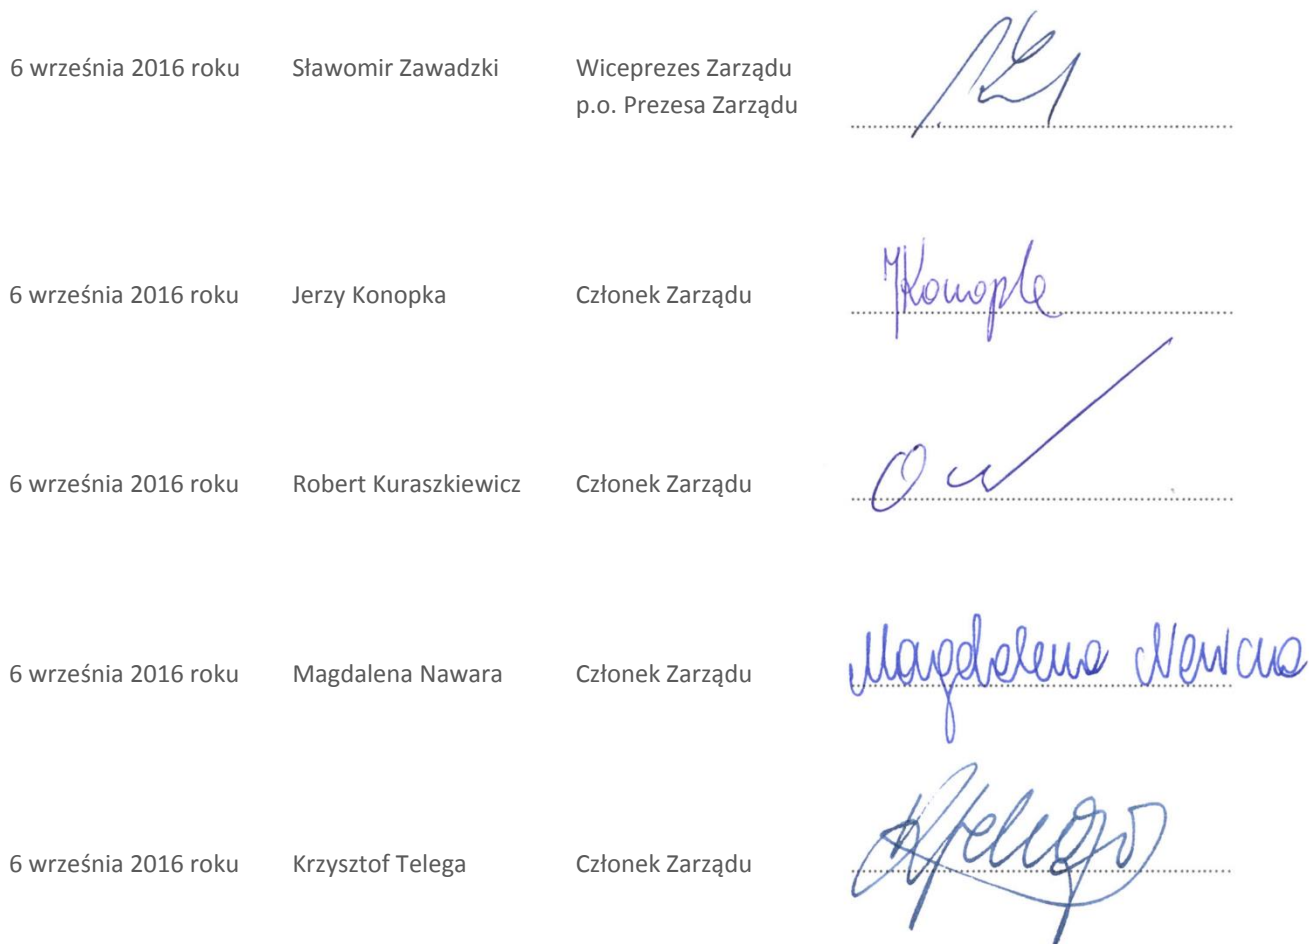 6 września 2016 roku Sławomir Zawadzki Wiceprezes Zarządu
p.o. Prezesa Zarządu
6 września 2016 roku Jerzy Konopka Członek Zarządu
JKonopka
6 września 2016 roku Robert Kuraszkiewicz Członek Zarządu
6 września 2016 roku Magdalena Nawara Członek Zarządu
Magdalena Nawara
6 września 2016 roku Krzysztof Telega Członek Zarządu